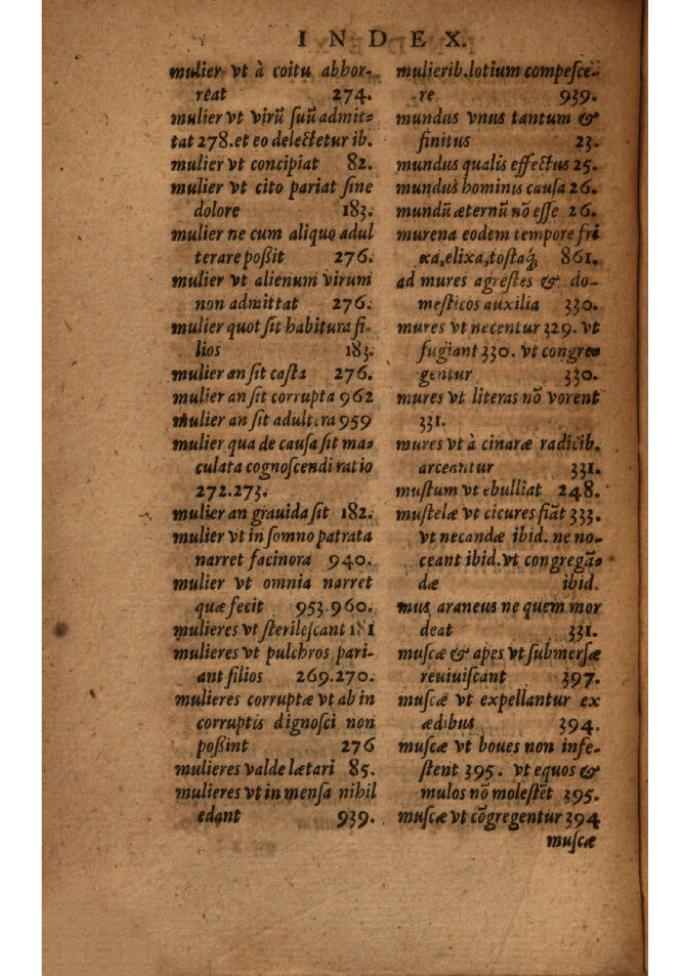 INDEX.
mulier vt à coitu abhor-
reat 274.
mulier vt virũ ſuũ admit-
tat 278. et eo delectetur ib.
mulier vt concipiat 82.
mulier vt cito pariat ſine
dolore 183.
mulier ne cum aliquo adul
terare poßit 276.
mulier vt alienum virum
non admittat 276.
mulier quot ſit habitura fi-
lios 183.
mulier an ſit caſta 276.
mulier an ſit corrupta 962
mulier an ſit adultera 959
mulier qua de cauſa ſit ma-
culata cognoſcendi ratio
272.273.
mulier an grauida ſit 182.
mulier vt in ſomno patrata
narret facinora 940.
mulier vt omnia narret
quæ fecit 953.960.
mulieres vt ſterileſcant 181
mulieres vt pulchros pari-
ant filios 269.270.
mulieres corruptæ vt ab in
corruptis dignoſci non
poßint 276
mulieres valde lætari 85.
mulieres vt in menſa nihil
edant 939.
mulierib. lotium compeſce-
re 939.
mundus vnus tantum &
finitus 23.
mundus qualis effectus 25.
mundus hominis cauſa 26.
mundũ æternũ nõ eſſe 26.
murena eodem tempore fri
xa, elixa, toſtaq́; 861.
ad mures agreſtes & do-
meſticos auxilia 330.
mures vt necentur 329. vt
fugiant 330. vt congre-
gentur 330.
mures vt literas nõ vorent
331.
mures vt à cinaræ radicib.
arceantur 331.
muſtum vt ebulliat 248.
muſtelæ vt cicures fiãt 333.
vt necandæ ibid. ne no-
ceant ibid. vt congregã-
dæ ibid.
mus araneus ne quem mor
deat 331.
muſcæ & apes vt ſubmerſæ
reuiuiſcant 397.
muſcæ vt expellantur ex
ædibus 394.
muſcæ vt boues non infe-
ſtent 395. vt equos &
mulos nõ moleſtẽt 395.
muſcæ vt cõgregentur 394
muſcæ